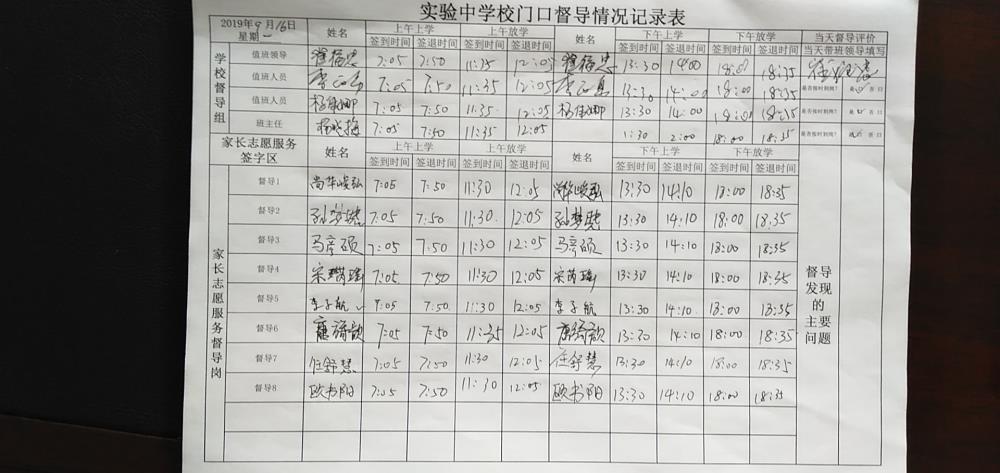 实验中学校门口督导情况记录表
2019年9月16日 星期一 姓名 上午上学 上午放学 姓名 下午上学 下午放学 当天督导评价
签到时间 签退时间 签到时间 签退时间 签到时间 签退时间 签到时间 签退时间 当天带班领导填写
学校督导组
值班领导 7:05 7:50 11:35 12:05 13:30 14:00 18:00 18:35
值班人员 7:05 7:50 11:35 12:05 13:30 14:00 18:00 18:35 是否按时到岗? 是☑ 否口
值班人员 7:05 7:50 11:35 12:05 13:30 14:00 18:00 18:35 是否按时到岗? 是☑ 否口
班主任 杨晓梅 7:05 7:50 11:35 12:05 1:30 2:00 18:00 18:35 是否按时到岗? 是☑ 否口
家长志愿服务签字区 姓名 上午上学 上午放学 姓名 下午上学 下午放学
签到时间 签退时间 签到时间 签退时间 签到时间 签退时间 签到时间 签退时间
家长志愿服务督导岗
督导1 7:05 7:50 11:30 12:05 13:30 14:10 18:00 18:35
督导2 孙梦晓 7:05 7:50 11:30 12:05 孙梦晓 13:30 14:10 18:00 18:35
督导3 马彦硕 7:05 7:50 11:30 12:05 马彦硕 13:30 14:10 18:00 18:35
督导4 7:05 7:50 11:30 12:05 13:30 14:10 18:00 18:35
督导5 李子航 7:05 7:50 11:30 12:05 李子航 13:30 14:10 18:00 18:35
督导6 7:05 7:50 11:35 12:05 13:30 14:10 18:00 18:35
督导7 任舒慧 7:05 7:50 11:30 12:05 任舒慧 13:30 14:10 18:00 18:35
督导8 欧书阳 7:05 7:50 11:30 12:05 欧书阳 13:30 14:10 18:00 18:35
督导发现的主要问题